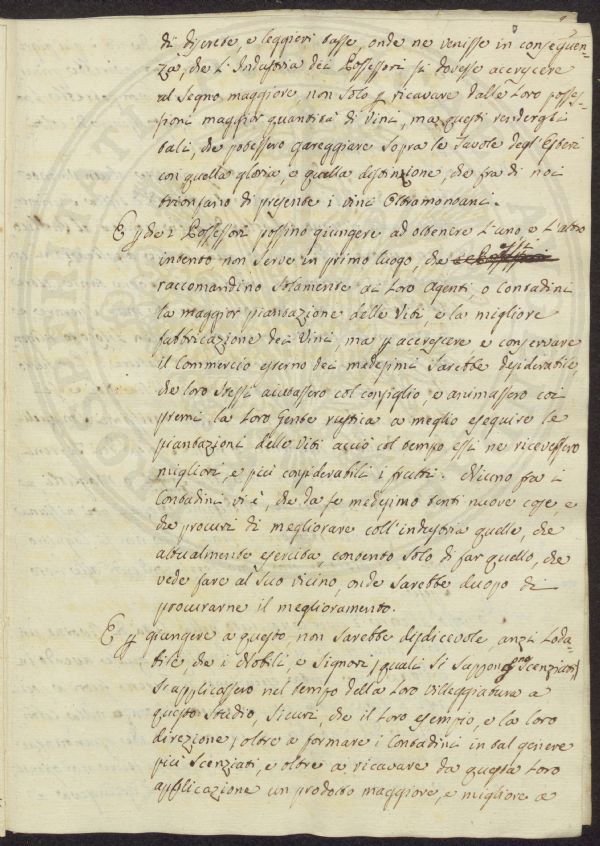 di discrete, e leggieri tasse, onde ne venisse in conseguen=
za, che l'Industria dei Possessori si dovesse accrescere
al segno maggiore, non solo p ricavare dalle loro posses=
sioni maggior quantità di Vini, ma questi rendergli
tali, che potessero gareggiare sopra le Tavole degl'Esteri
con quella gloria, e quella distinzione, che fra di noi
trionfano di presente i vini Oltramontani.
E p che i Possessori possino giungere ad ottenere l'uno e l'altro
intento non serve in primo luogo, che essi
raccomandino solamente ai loro Agenti, o Contadini
la maggior piantazione delle Viti, e la migliore
fabbricazione dei Vini, ma p accrescere e conservare
il Commercio esterno dei medesimi sarebbe desiderabile,
che loro stessi aiutassero col consiglio, e animassero coi
premi la loro Gente rustica a meglio eseguire le
piantazioni delle Viti acciò col tempo essi ne ricevessero
migliori, e più considerabili i frutti. Niuno fra i
Contadini vi è, che da se medesimo tenti nuove cose e
che procuri di megliorare coll'industria quelle, che
attualmente esercita, contento solo di far quello, che
vede fare al suo vicino, onde sarebbe duopo di
procurarne il meglioramento.
E p giungere a questo non sarebbe disdicevole, anzi loda=
bile, che i Nobili, e Signori, quali si suppongono Scenziati
s'applicassero nel tempo della loro villeggiatura a
questo studio, sicuri, che il loro esempio, e la loro
direzione, oltre a formare i Contadini in tal genere
più Scenziati, e oltre a ricavare da questa loro
applicazione un prodotto maggiore, e migliore a